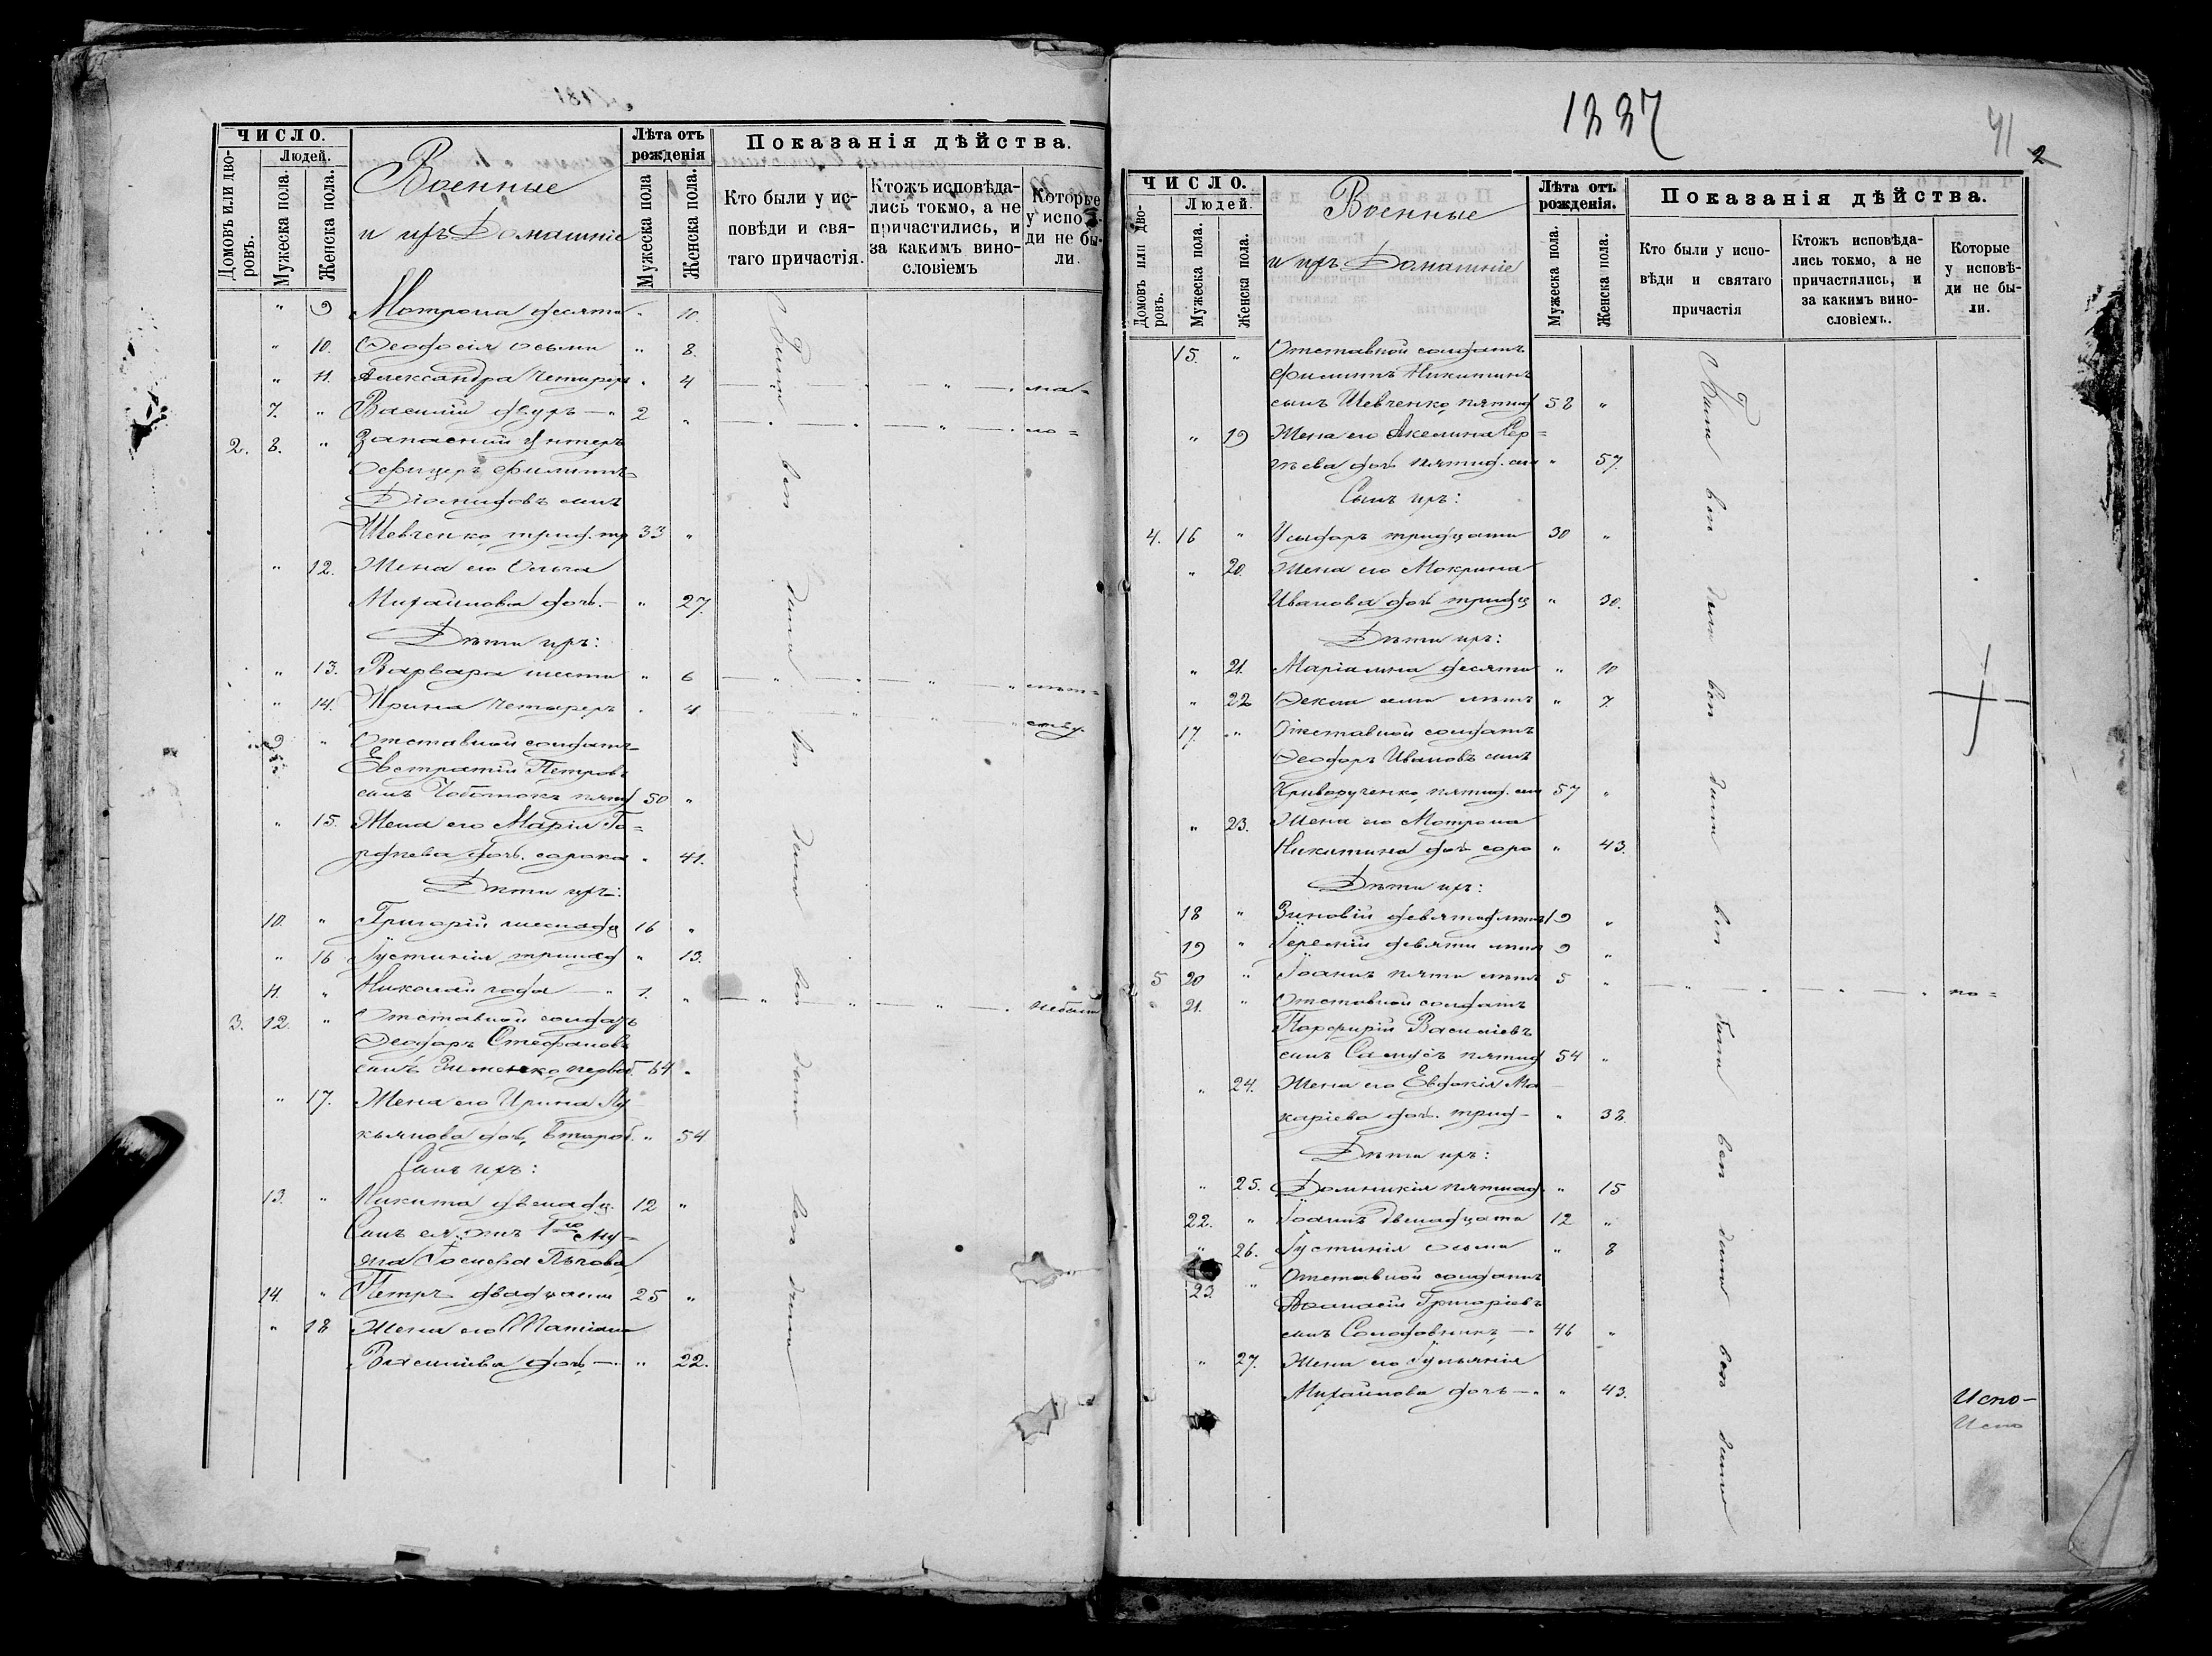 ЧИСЛО.
Домовъ или дворовъ.
Людей.
Мужеска пола.
Женска пола.
Военные
и ихъ Домашніе
Лѣта отъ рожденія
Мужеска пола
Женска пола.
Показанія дѣйства.
Кто были у исповѣди и святаго причастія.
Ктожъ исповѣдались токмо, а не причастились, и за какимъ винословіемъ
Которые у исповѣди не были.
" 9 Мотрона десяти " 10.
" 10. Ѳеодосія осьми " 8.
" 11. Александра четырехъ " 4 ма=
7. " Василій двухъ — " 2 " ло=
2. 8. " Запасный Унтеръ
Офицеръ Филиппъ
Діомидовъ сынъ
Шевченко, трид. тр 33 "
" 12. Жена его Ольга
Михайлова дочь. — " 27.
Дѣти ихъ:
" 13. Варвара шести " 6 лѣт=
" 14. Ирина четырехъ " 4 ству.
9 " Отставной солдатъ
Евстратій Петровъ
сынъ Чоботокъ пятид 50 "
" 15. Жена его Марія Го=
рдѣева дочь. сорока " 41.
Дѣти ихъ:
10. " Григорій шеснадц 16 "
" 16 Іустинія тринад " 13.
11. " Николай года — " 1. " небыт
3. 12. " Отставной солдатъ
Ѳеодоръ Стефановъ
сынъ Зименко, первоб. 64 "
" 17. Жена его Ирина Лу
кьянова дочь, второб. " 54
Сынъ ихъ:
13. " Никита двенадц. 12 "
Сынъ ея отъ 1го му=
жа
14. " Петръ двадцати 25 "
" 18 Жена его Татіана
Василіева дочь — " 22.
1887
41
2
ЧИСЛО.
Домовъ или дворовъ.
Людей
Мужеска пола.
Женска пола.
Военные
и ихъ Домашніе
Лѣта отъ рожденія.
Мужеска пола.
Женска пола.
Показанія дѣйства.
Кто были у исповѣди и святаго причастія
Ктожъ исповѣдались токмо, а не причастились, и за какимъ винословіемъ.
Которые у исповѣди не были.
15. " Отставной солдатъ
Филиппъ Никитинъ
сынъ Шевченко, пятид 58 "
" 19 Жена его Акелина Сер=
гѣева дочь пятид. сем " 57.
Сынъ ихъ:
4. 16 " Исидоръ тридцати 30 "
" 20. Жена его Мокрина
Иванова дочь тридц " 30.
Дѣти ихъ:
" 21. Маріамна десяти " 10
" 22 Ѳекла семи лѣтъ " 7.
17. " Отставной солдатъ
Ѳеодоръ Ивановъ сынъ
Криворученко, пятид. сем 57 "
" 23. Жена его Мотрона
Никитина дочь соро " 43.
Дѣти ихъ:
18 " Зиновій девятнад лѣтъ 19 "
19 " девяти лѣтъ 9 "
5 20 " Іоаннъ пяти лѣтъ 5 " по=
21. " Отставной солдатъ
Порфирій Василіевъ
сынъ Самусь пятид 54 "
" 24. Жена его Евдокія Ма
каріева дочь. трид — " 38.
Дѣти ихъ:
" 25. Домникія пятнад. " 15
22. " Іоаннъ двенадцати 12 "
" 26. Іустинія осьми " 8
23. " Отставной солдатъ
Аѳанасій Григоріевъ
сынъ Солодовникъ, — " 46 "
" 27. Жена его Іуліанія
Михайлова дочь — " " 43.
Испо-
Испо